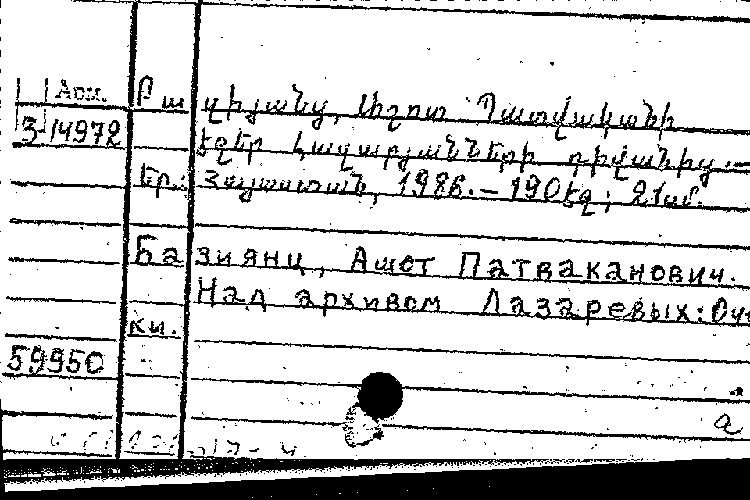 Арм. Բա զիյանց, Աշոտ Պատվականի
3-14972 Էջեր Լազարյանների դիվանից.—
Եր.: Հայաստան, 1986.— 190 էջ; 21 սմ.
Базиянц, Ашот Патваканович.
Над архивом Лазаревых: Оч
ки.
59950
а